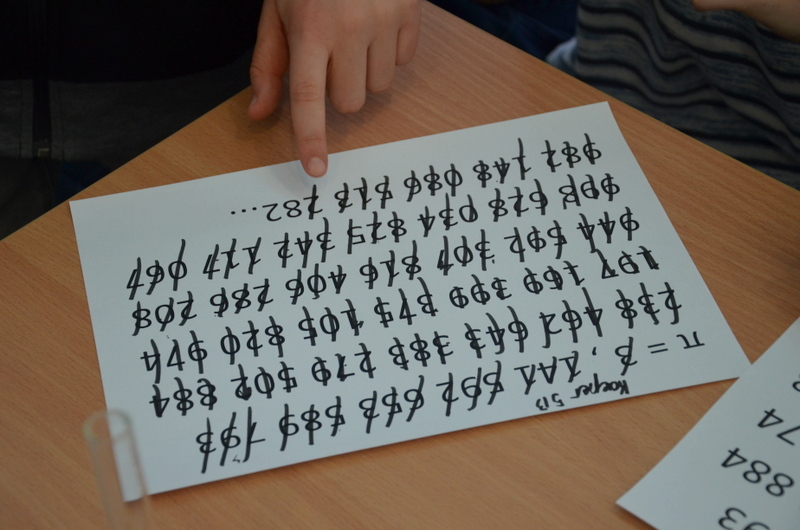 π = 3, 141 592 653 589 793
238 462 643 383 279 502 884
197 169 399 375 105 820 974
944 592 307 816 406 286 208
998 628 034 825 342 117 067
982 148 086 513 282...
884
74